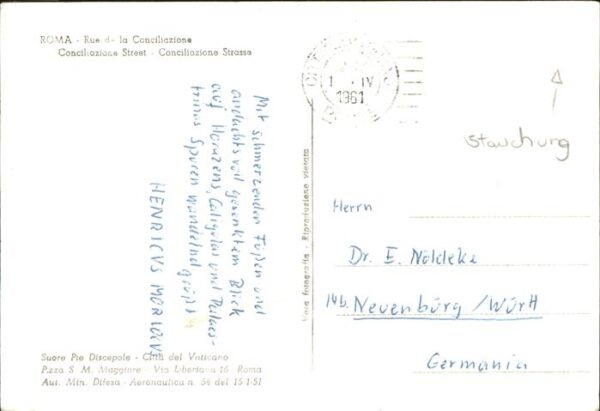 ROMA - Rue de la Conciliazione
Conciliazione Street - Conciliazione Strasse
1 . IV
1961
Stauchung
Mit schmerzenden Füßen und
andachtsvoll gesenktem Blick
auf Horazens, Caligulas und Palaes-
trinas Spuren wandelnd grüßt
HENRICVS MORIOVS
Vera fotografia - Riproduzione vietata
Herrn
Dr. E. Nöldeke
14b. Neuenbürg / Württ
Germania
Suore Pie Discepole - Città del Vaticano
P.zza S. M. Maggiore - Via Liberiana 16 Roma
Aut. Min. Difesa - Aeronautica n. 54 del 15-1-51